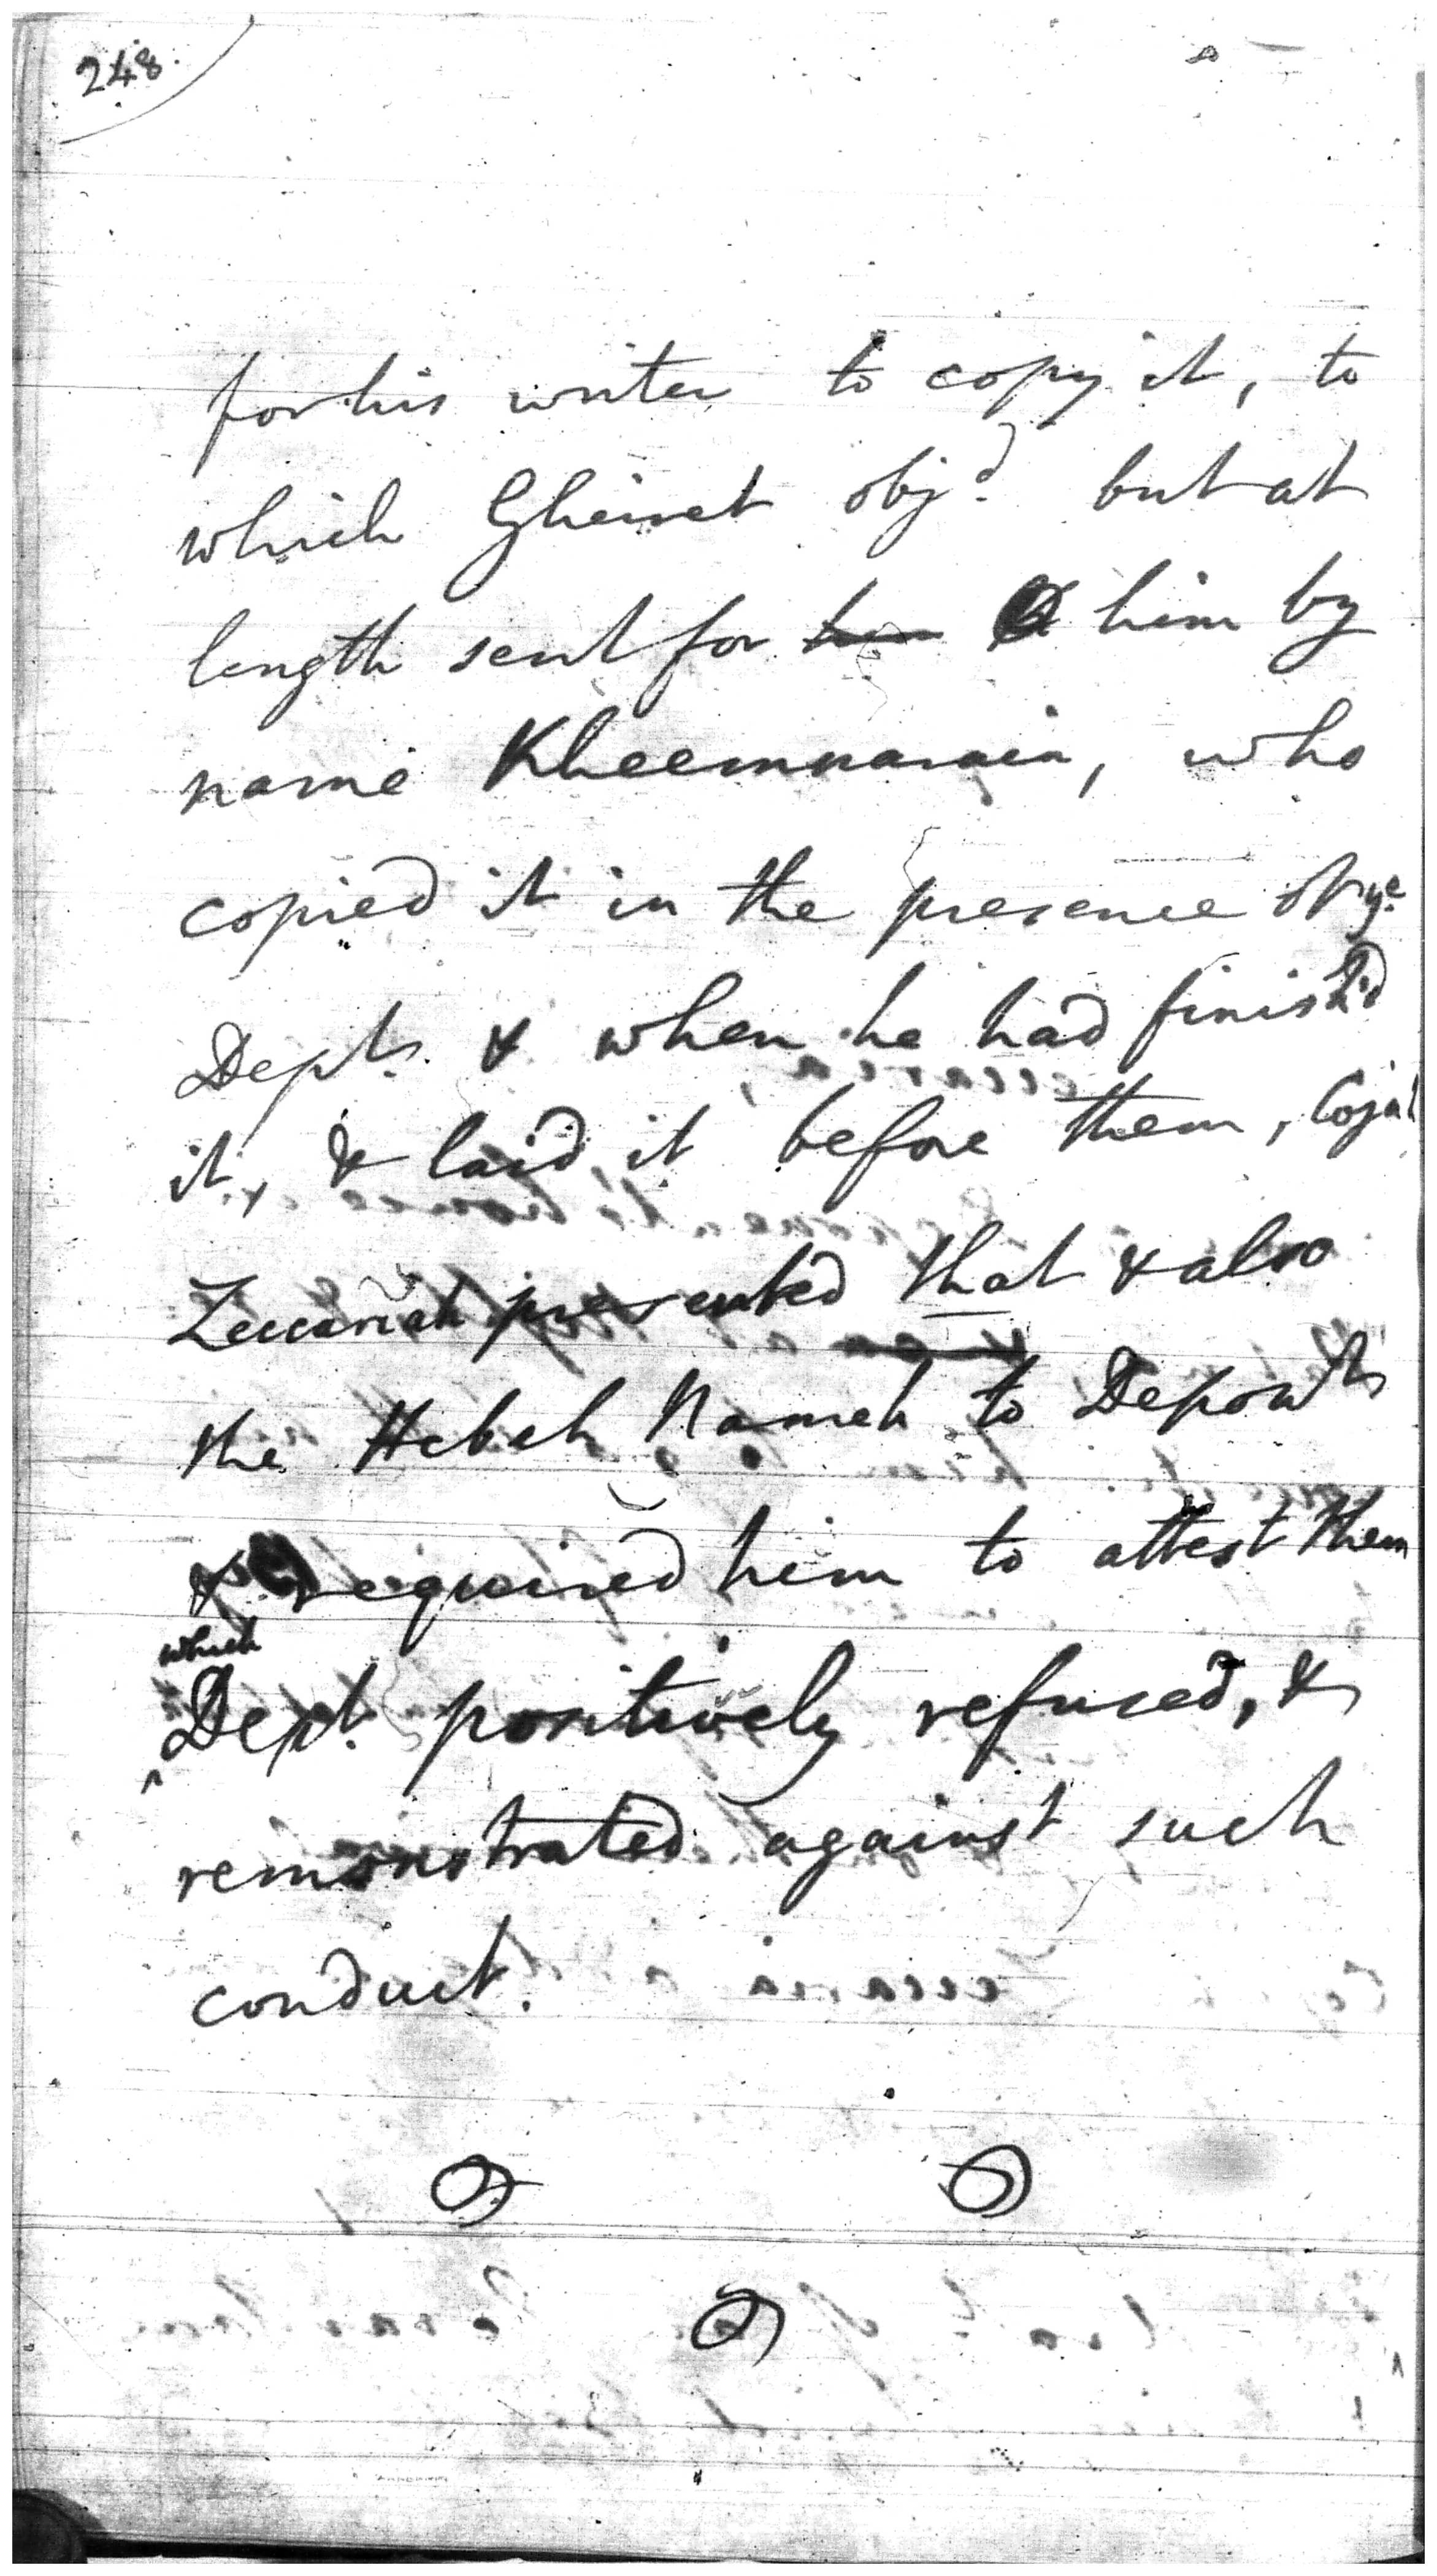 248.
for his writer to copy it, to
which Gheiret obj.d but at
length sent for him by
name Kheemnarain, who
copied it in the presence of ye
Depts. & when he had finish'd
it, & laid it before them, Coja
Zeccariah presented that & also
the Hebeh Nameh to Depon.ts
& required him to attest them
which
Dept. positively refused, &
remonstrated against such
conduct.